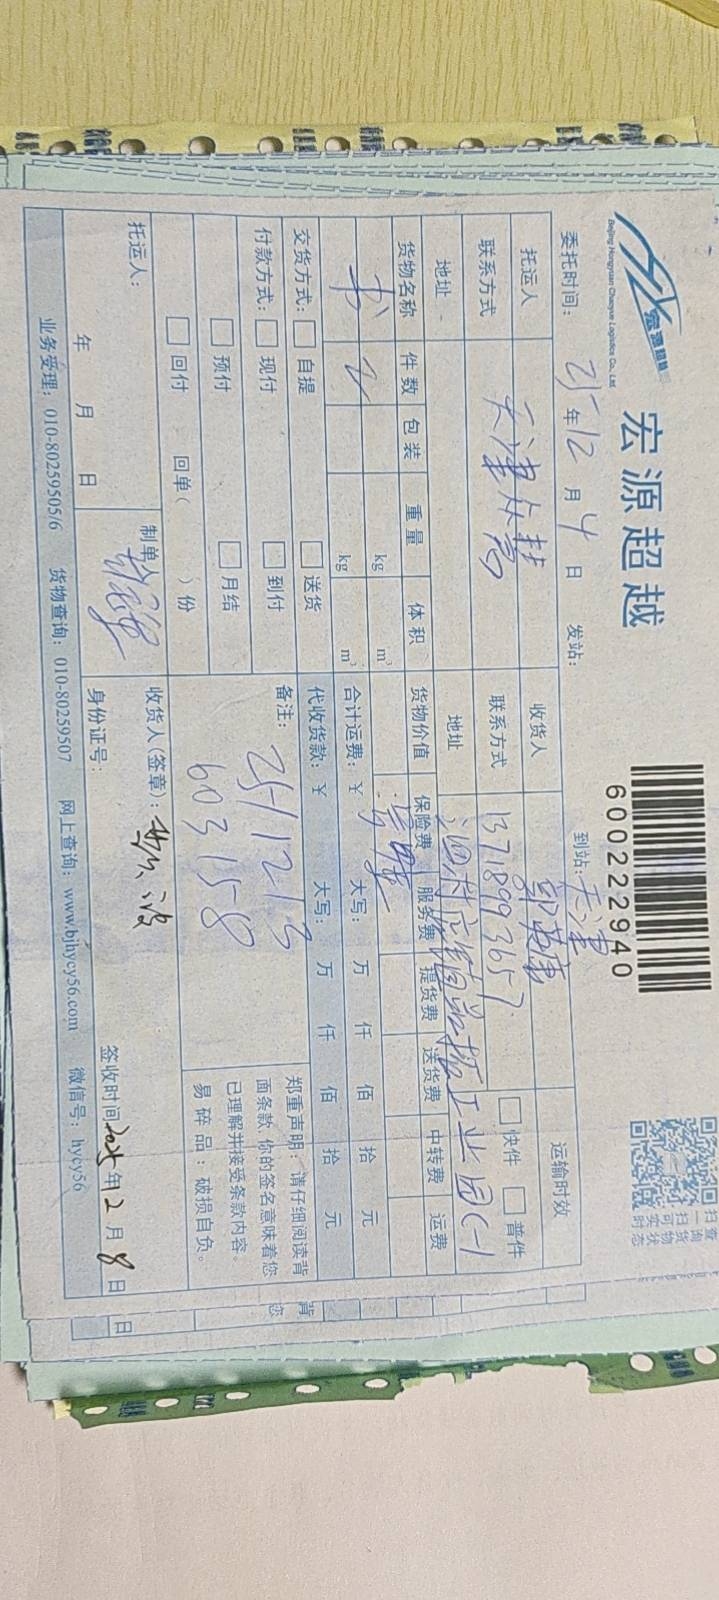 宏源超越
Beijing Hongyuan Chaoyue Logistics Co., Ltd.
宏源超越
600222940
扫一扫可实时
查询货物状态
委托时间: 25年12月4日 发站: 到站: 天津
托运人 收货人 郭英康 运输时效
联系方式 天津众楚 联系方式 13718993657 快件 普件
地址 地址 工业园C-1
货物名称 件数 包装 重量 体积 货物价值 保险费 服务费 提货费 送货费 中转费 运费
书 2 kg m³
kg m³ 合计运费: ¥ 大写: 万 仟 佰 拾 元
交货方式: 自提 送货 代收货款: ¥ 大写: 万 仟 佰 拾 元
付款方式: 现付 到付 备注: 25-12-13
预付 月结 603158
回付 回单( )份
郑重声明: 请仔细阅读背
面条款, 你的签名意味着您
已理解并接受条款内容。
易碎品: 破损自负。
托运人: 制单 收货人(签章):
年 月 日 身份证号: 签收时间2025年2月8日
业务受理: 010-80259505/6 货物查询: 010-80259507 网上查询: www.bjhycy56.com 微信号: hycy56
背
您
日